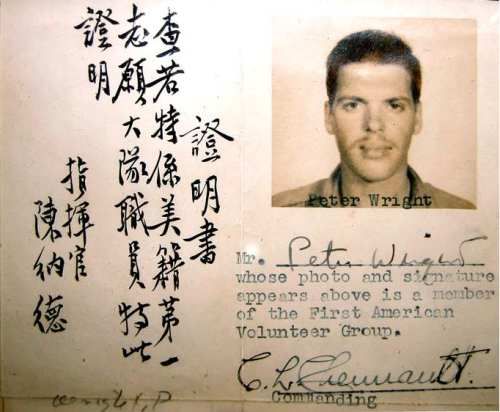 證明書
查若特係美籍第一
志願大隊職員特此
證明
指揮官
陳納德
Peter Wright
Mr. Peter Wright
whose photo and signature
appears above is a member
of the First American
Volunteer Group.
C. L. Chennault.
Commanding
Wright, P